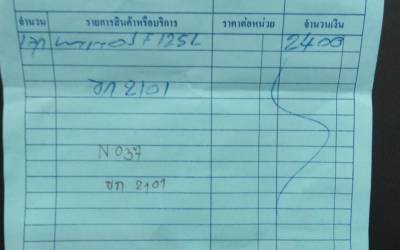 จำนวน รายการสินค้าหรือบริการ ราคาต่อหน่วย จำนวนเงิน
1ลูก F 125L 2400
ขก 2101
N 037
ขก 2101